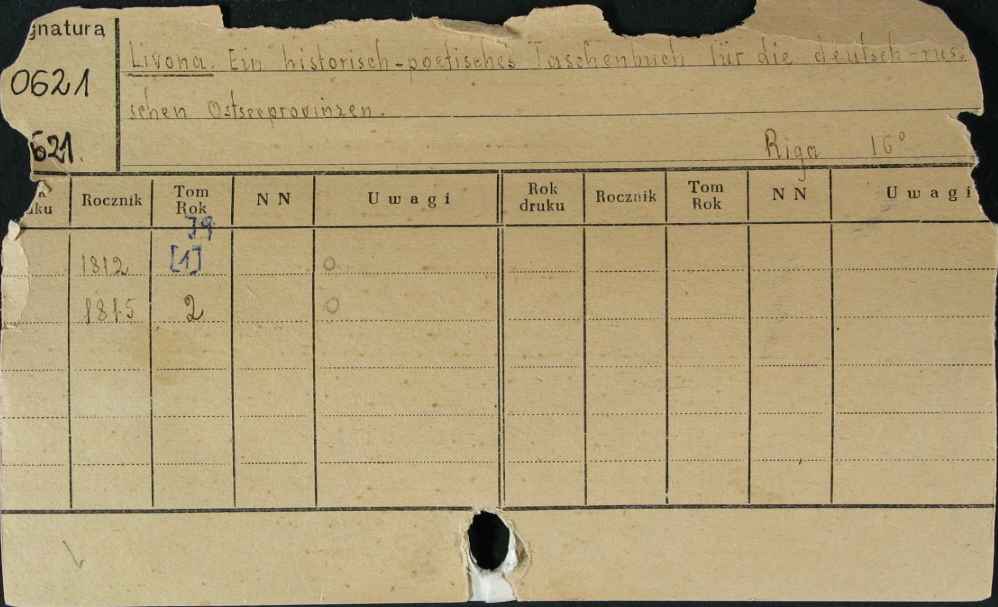 gnatura
Livona. Ein historisch-poetisches Taschenbuch für die deutsch-rus-
0621
schen Ostseeprovinzen.
621.
Riga 16°
uku Rocznik Tom Rok N N Uwagi Rok druku Rocznik Tom Rok N N Uwagi
79
1812 [1] O
1815 2 O